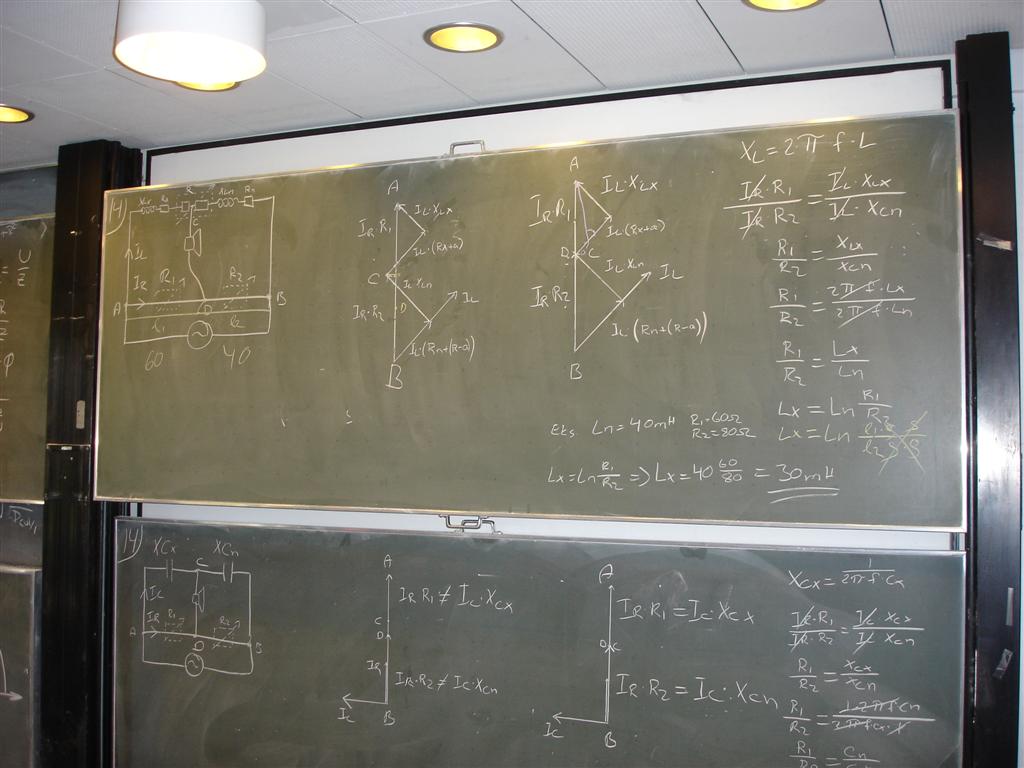 14)
XLx Rx R XLn Rn
IL
IR R1 R2
A D B
l1 l2
60 40
A
IR·R1 IL·XLx
IL·(Rx+a)
C
IL XLn
IR·R2 D IL
IL·(Rn+(R-a))
B
A
IR R1 IL·XLx
IL(Rx+a)
D C
IL XLn
IR R2 IL
IL(Rn+(R-a))
B
XL=2·π f·L
IR·R1 / IR R2 = IL·XLx / IL·Xcn
R1 / R2 = XLx / Xcn
R1 / R2 = 2π f·Lx / 2π f·Ln
R1 / R2 = Lx / Ln
Lx = Ln R1 / R2
Lx = Ln l1 / l2
Eks. Ln=40mH R1=60Ω
R2=80Ω
Lx=Ln R1/R2 => Lx=40 60/80 = 30mH
14)
XCx XCn
C
Ic
IR R1 R2
A D B
A
IR R1 ≠ Ic·Xcx
C
D
IR
IR·R2 ≠ Ic·Xcn
Ic B
A
IR R1 = Ic·Xcx
D C
IR·R2 = Ic·Xcn
Ic B
Xcx = 1 / 2π·f·Cx
IR·R1 / IR·R2 = Ic·Xcx / Ic·Xcn
R1 / R2 = Xcx / Xcn
R1 / R2 = 1·2πf·Cn / 2πf·Cx·1
R1 / R2 = Cn
U
φ